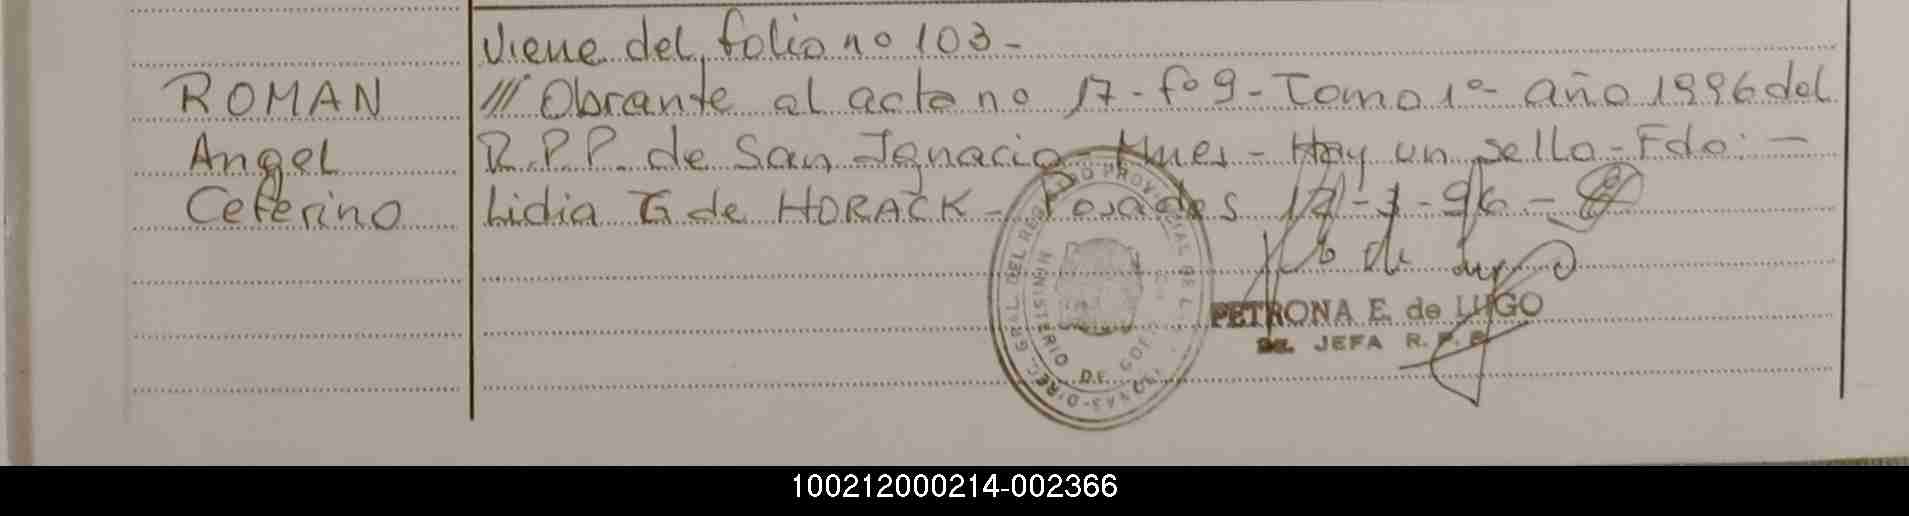 Viene del folio nº 103-
ROMAN /// Obrante al acta nº 17-fº9-Tomo 1º- año 1996 del
Angel R.P.P. de San Ignacio-Mnes- Hay un sello-Fdo:-
Ceferino Lidia G de HORACK- Posadas 17-1-96-
PETRONA E. de LUGO
JEFA R. P. P.
DIREC. GRAL. DEL REGISTRO PROVINCIAL DE L
MINISTERIO DE GOB
100212000214-002366